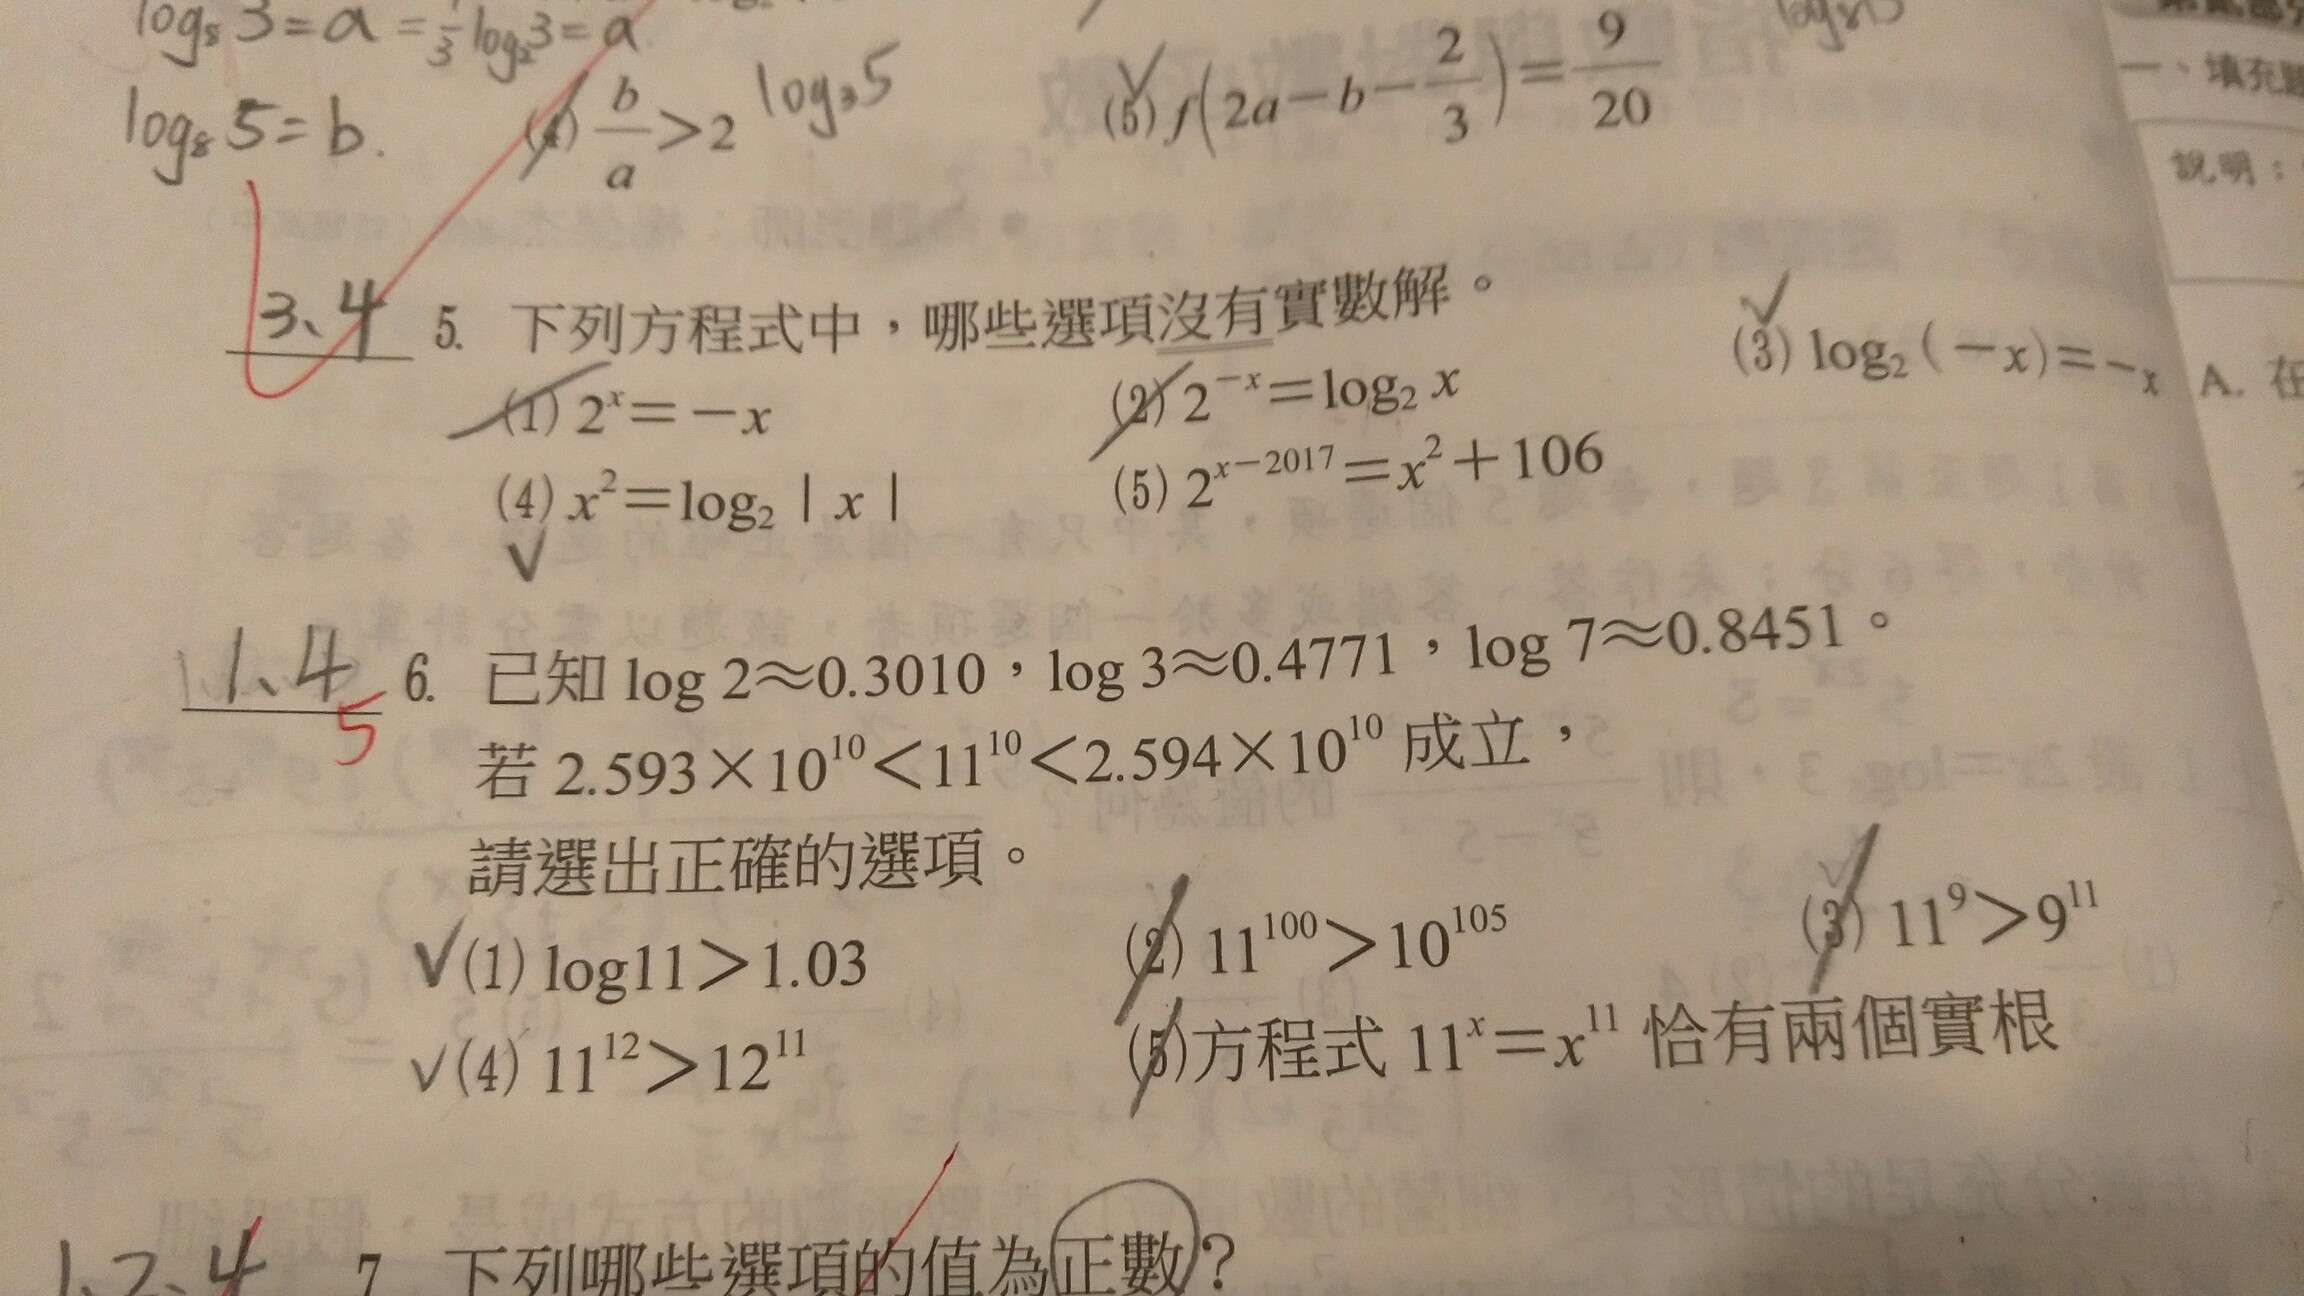 log₈3=a=⅓log₂3=a
log₈5=b.
(4) b/a>2 log₃5
(5) f(2a−b−2/3)=9/20
一、填充題
說明：
3、4 5. 下列方程式中，哪些選項沒有實數解。
(1) 2ˣ=−x (2) 2⁻ˣ=log₂ x (3) log₂(−x)=−x
(4) x²=log₂|x| (5) 2ˣ⁻²⁰¹⁷=x²+106
A. 在
1、4 5 6. 已知 log 2≈0.3010，log 3≈0.4771，log 7≈0.8451。
若 2.593×10¹⁰<11¹⁰<2.594×10¹⁰ 成立，
請選出正確的選項。
(1) log11>1.03 (2) 11¹⁰⁰>10¹⁰⁵ (3) 11⁹>9¹¹
(4) 11¹²>12¹¹ (5)方程式 11ˣ=x¹¹ 恰有兩個實根
1、2、4 7 下列哪些選項的值為正數？